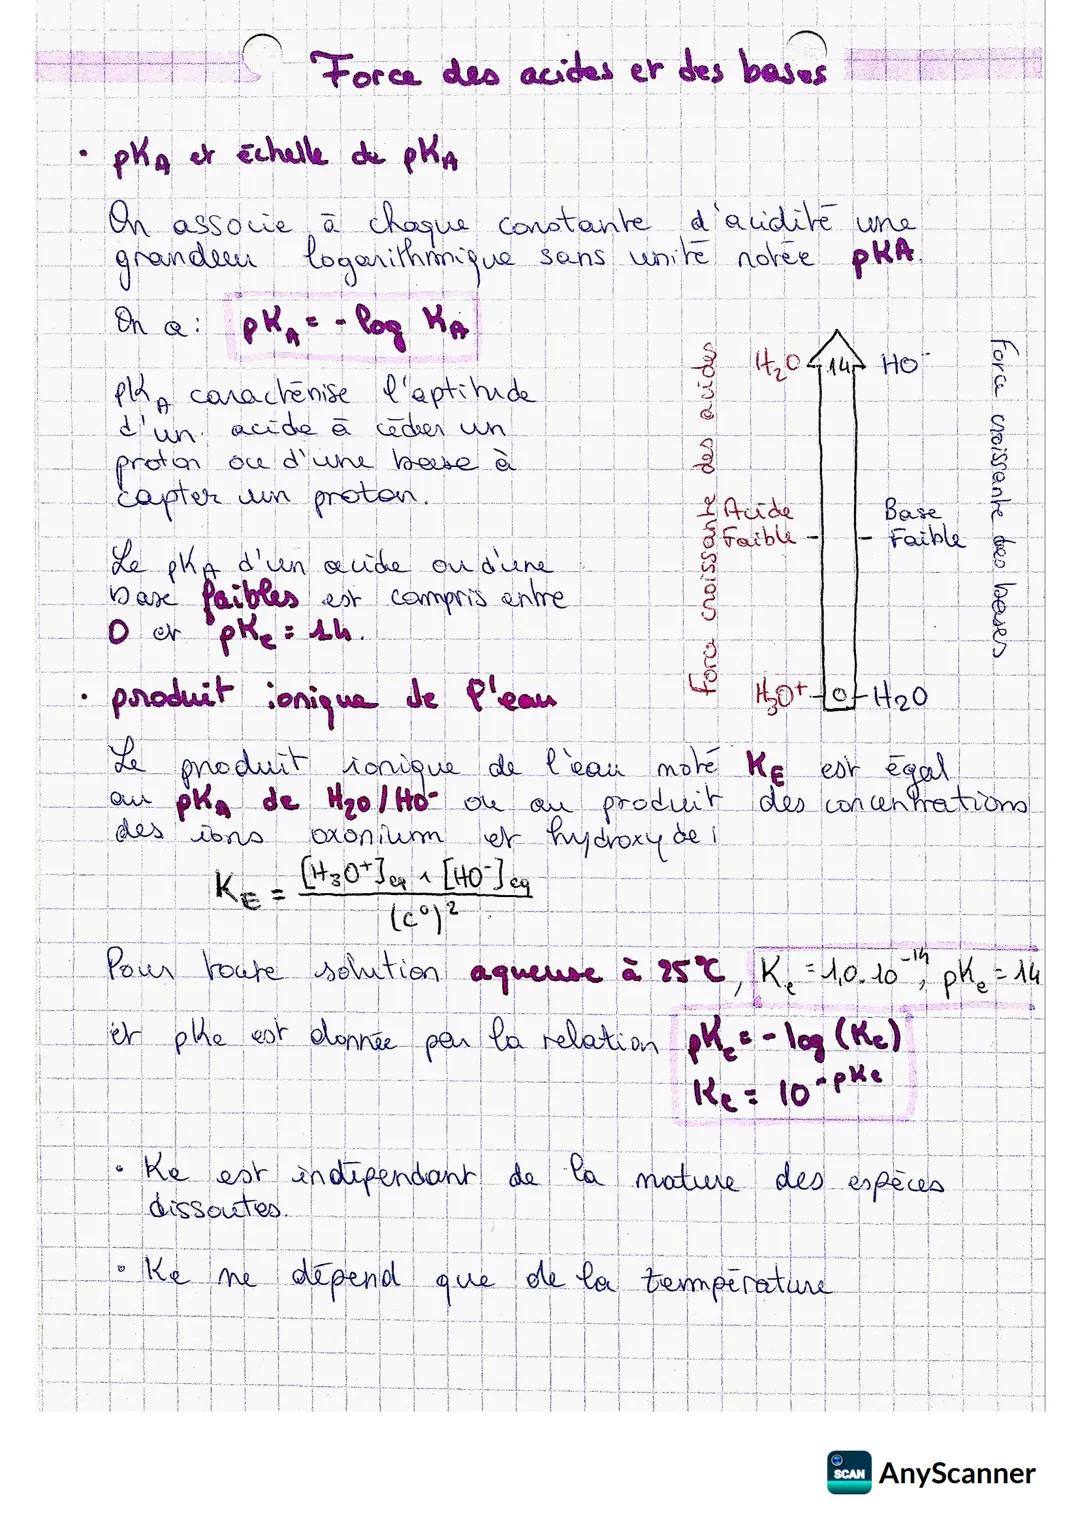 Force des acides et des bases
• pKA et échelle de pKA
On associe à chaque constante d'acidité une
grandeur logarithmique sans unité notée pKA.
On a : pKA = - log KA
pKA caractérise l'aptitude
d'un acide à céder un
proton ou d'une base à
capter un proton.
Le pKA d'un acide ou d'une
base faibles est compris entre
0 et pKe = 14.
Force croissante des acides
H2O 14 HO-
Acide Faible
Base Faible
H3O+ 0 H2O
Force croissante des bases
• produit ionique de l'eau
Le produit ionique de l'eau noté KE est égal
au pKA de H2O/HO- ou au produit des concentrations
des ions oxonium et hydroxyde :
KE = [H3O+]eq × [HO-]eq / (c°)²
Pour toute solution aqueuse à 25°C, Ke = 1,0.10^-14, pKe = 14
et pKe est donnée par la relation pKe = - log (Ke)
Ke = 10^-pKe
• Ke est indépendant de la nature des espèces
dissoutes.
• Ke ne dépend que de la température
SCAN AnyScanner